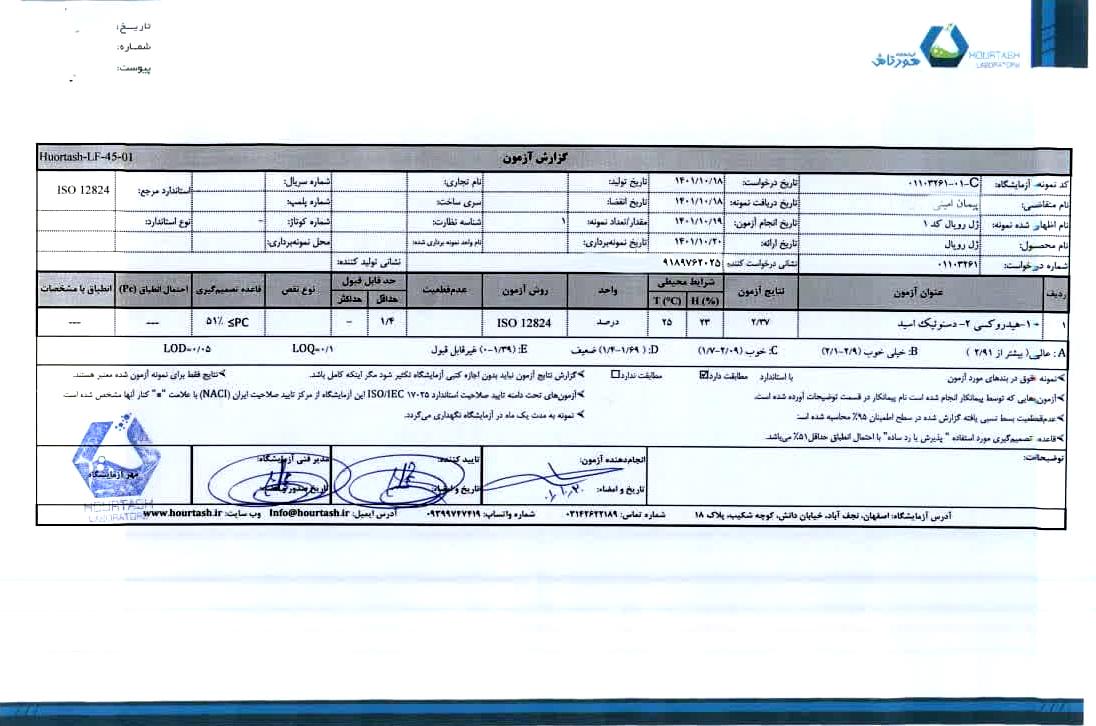 تاریـخ:
شمـاره:
پیوست:
آزمایشگاه
هورتاش
HOURTASH
LABORATORY
Huortash-LF-45-01
گزارش آزمون
کد نمونه آزمایشگاه: ۰۱۱۰۳۲۶۱-۰۱-C تاریخ درخواست: ۱۴۰۱/۱۰/۱۸ تاریخ تولید: نام تجاری: شماره سریال: استاندارد مرجع: ISO 12824
نام متقاضی: پیمان امینی تاریخ دریافت نمونه: ۱۴۰۱/۱۰/۱۸ تاریخ انقضا: سری ساخت: شماره پلمپ:
نام اظهار شده نمونه: ژل رویال کد ۱ تاریخ انجام آزمون: ۱۴۰۱/۱۰/۱۹ مقدار/تعداد نمونه: ۱ شناسه نظارت: شماره کوتاژ: – نوع استاندارد:
نام محصول: ژل رویال تاریخ ارائه: ۱۴۰۱/۱۰/۲۰ تاریخ نمونه‌برداری: نام واحد نمونه برداری شده: محل نمونه‌برداری:
شماره درخواست: ۰۱۱۰۳۲۶۱ نشانی درخواست کننده: ۹۱۸۹۷۶۲۰۲۵ نشانی تولید کننده:
ردیف عنوان آزمون نتایج آزمون شرایط محیطی H (%) T (°C) واحد روش آزمون عدم‌قطعیت حد قابل قبول حداقل حداکثر نوع نقص قاعده تصمیم‌گیری احتمال انطباق (Pc) انطباق با مشخصات
۱ ۱۰-هیدروکسی ۲-دسنوئیک اسید ۲/۳۷ ۲۳ ۲۵ درصد ISO 12824 ۱/۴ – ۵۱٪ ≤PC --- ---
A: عالی( بیشتر از ۲/۹۱ ) B: خیلی خوب (۲/۹-۲/۱) C: خوب (۲/۰۹-۱/۷) D: (۱/۶۹-۱/۴) ضعیف E: (۱/۳۹-۰) غیرقابل قبول LOQ=۰/۱ LOD=۰/۰۵
➢نمونه فوق در بندهای مورد آزمون با استاندارد مطابقت دارد☑ مطابقت ندارد☐ ➢گزارش نتایج آزمون نباید بدون اجازه کتبی آزمایشگاه تکثیر شود مگر اینکه کامل باشد. ➢نتایج فقط برای نمونه آزمون شده معتبر هستند.
➢آزمون‌هایی که توسط پیمانکار انجام شده است نام پیمانکار در قسمت توضیحات آورده شده است. ➢آزمون‌های تحت دامنه تایید صلاحیت استاندارد ISO/IEC ۱۷۰۲۵ این آزمایشگاه از مرکز تایید صلاحیت ایران (NACI) با علامت "*" کنار آنها مشخص شده است.
➢عدم‌قطعیت بسط نسبی یافته گزارش شده در سطح اطمینان ۹۵٪ محاسبه شده است. ➢نمونه به مدت یک ماه در آزمایشگاه نگهداری می‌گردد.
➢قاعده تصمیم‌گیری مورد استفاده " پذیرش یا رد ساده" با احتمال انطباق حداقل۵۱٪ می‌باشد.
توضیحات: انجام‌دهنده آزمون: تایید کننده: مدیر فنی آزمایشگاه: مهر آزمایشگاه
تاریخ و امضاء: تاریخ و امضاء:
HOURTASH
LABORATORY
آدرس آزمایشگاه: اصفهان، نجف آباد، خیابان دانش، کوچه شکیب، پلاک ۱۸ شماره تماس: ۰۳۱۴۲۶۲۲۱۸۹ شماره واتساپ: ۰۹۳۹۹۷۴۷۴۱۹ آدرس ایمیل: Info@hourtash.ir وب سایت: www.hourtash.ir